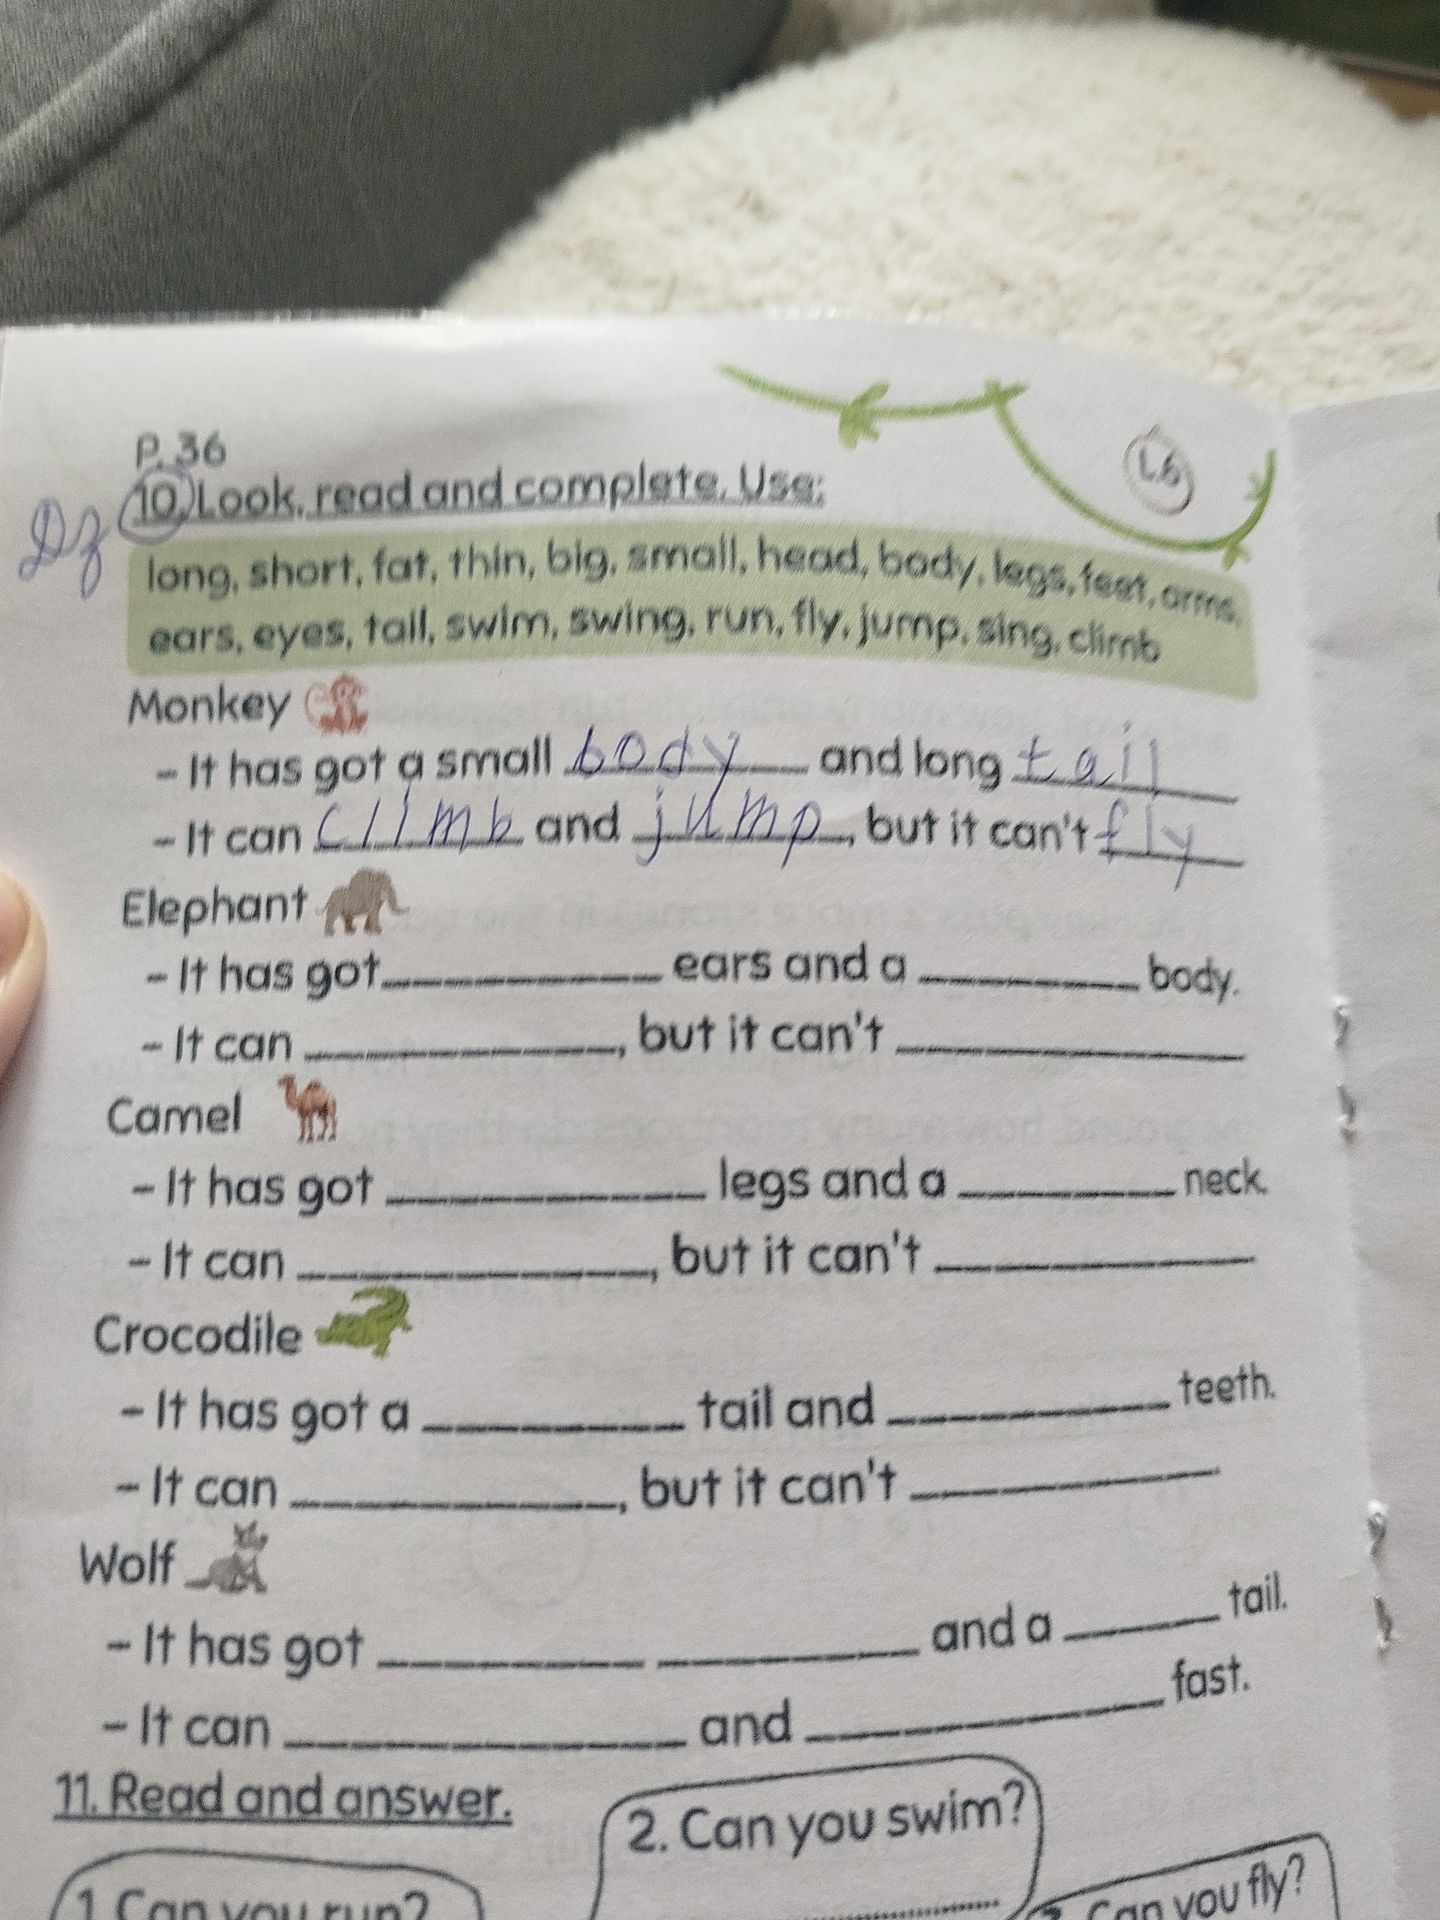 P. 36
Dz 10. Look, read and complete. Use:
L6
long, short, fat, thin, big, small, head, body, legs, feet, arms,
ears, eyes, tail, swim, swing, run, fly, jump, sing, climb
Monkey
- It has got a small body and long tail
- It can climb and jump, but it can't fly
Elephant
- It has got__________ ears and a __________ body.
- It can __________, but it can't __________
Camel
- It has got __________ legs and a __________ neck.
- It can __________, but it can't __________
Crocodile
- It has got a __________ tail and __________ teeth.
- It can __________, but it can't __________
Wolf
- It has got __________ __________ and a ______ tail.
- It can __________ and __________ fast.
11. Read and answer.
2. Can you swim?
1. Can you run?
Can you fly?